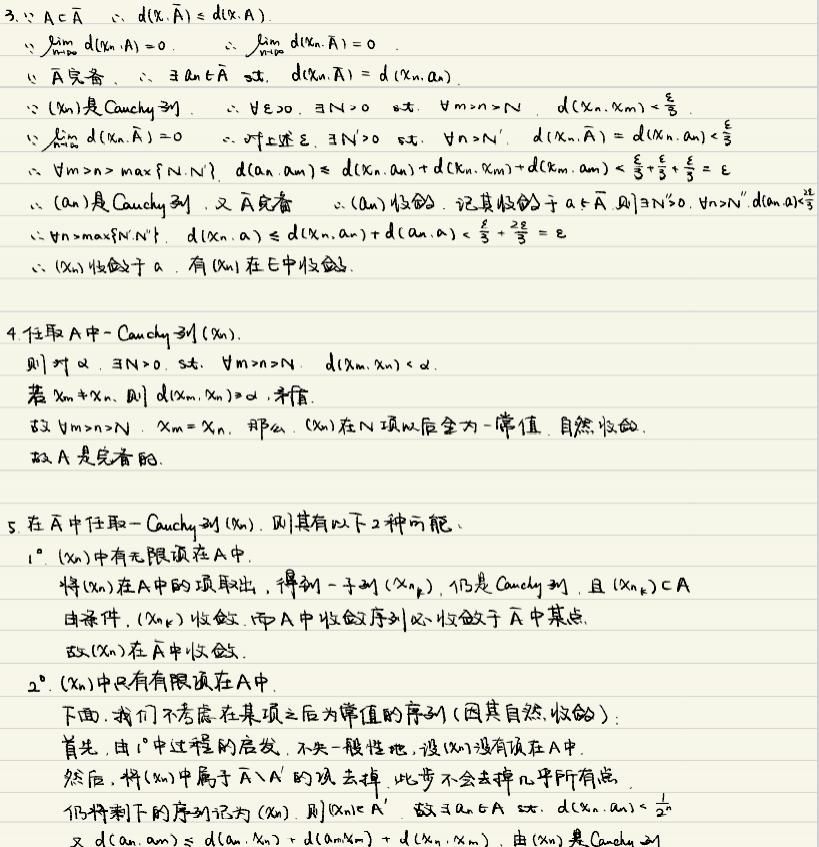 3. ∵ A⊂Ā ∴ d(x.Ā) ≤ d(x.A).
∵ lim_{n→∞} d(xn.A)=0. ∴ lim_{n→∞} d(xn.Ā)=0.
∵ Ā完备. ∴ ∃ an∈Ā st. d(xn.Ā) = d(xn.an).
∵ (xn)是Cauchy列. ∴ ∀ε>0. ∃N>0 st. ∀m>n>N. d(xn.xm)<ε/3.
∵ lim_{n→∞} d(xn.Ā)=0 ∴对上述ε. ∃N'>0 st. ∀n>N'. d(xn.Ā) = d(xn.an)<ε/3
∴ ∀m>n>max{N.N'}. d(an.am) ≤ d(xn.an)+d(xn.xm)+d(xm.am) < ε/3+ε/3+ε/3 = ε
∴ (an)是Cauchy列. 又Ā完备 ∴(an)收敛. 记其收敛于a∈Ā. 则∃N''>0. ∀n>N''.d(an.a)<2ε/3
∴∀n>max{N'.N''}. d(xn.a) ≤ d(xn.an)+d(an.a) < ε/3 + 2ε/3 = ε
∴ (xn)收敛于a. 有(xn)在E中收敛.
4. 任取A中一Cauchy列(xn).
则对α. ∃N>0. st. ∀m>n>N. d(xm.xn)<α.
若xm≠xn. 则d(xm.xn)≥α.矛盾.
故∀m>n>N. xm=xn. 那么.(xn)在N项以后全为一常值.自然收敛.
故A是完备的.
5. 在Ā中任取一Cauchy列(xn). 则其有以下2种可能.
1°. (xn)中有无限项在A中.
将(xn)在A中的项取出, 得到一子列(xnk). 仍是Cauchy列. 且(xnk)⊂A
由条件. (xnk)收敛. 而A中收敛序列必收敛于Ā中某点.
故(xn)在Ā中收敛.
2°. (xn)中只有有限项在A中.
下面.我们不考虑在某项之后为常值的序列(因其自然收敛):
首先, 由1°中过程的启发. 不失一般性地, 设(xn)没有项在A中.
然后, 将(xn)中属于Ā\A'的项去掉. 此步不会去掉几乎所有点.
仍将剩下的序列记为(xn). 则(xn)∈A' 故∃an∈A st. d(xn.an)<1/2ⁿ
又d(an.am) ≤ d(an.xn)+d(amxm)+d(xn.xm). 由(xn)是Cauchy列